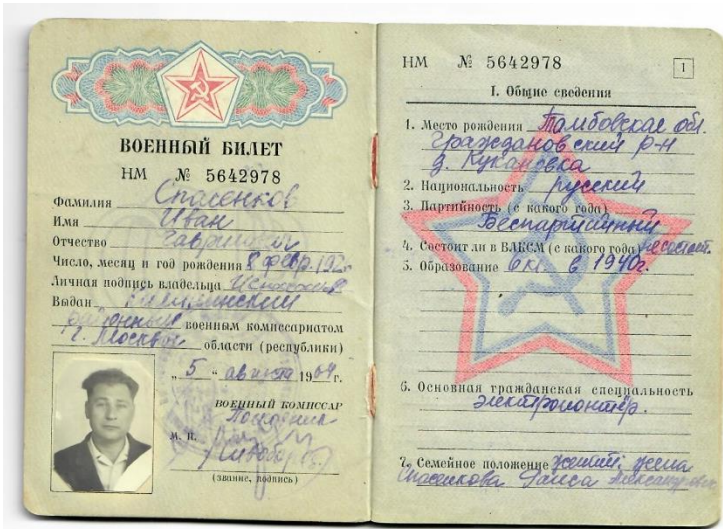 ВОЕННЫЙ БИЛЕТ
НМ № 5642978
Фамилия Спасенков
Имя Иван
Отчество
Число, месяц и год рождения 8 февр.
Личная подпись владельца
Выдан
районным военным комиссариатом
г. Москвы области (республики)
„5“ августа 1964 г.
ВОЕННЫЙ КОМИССАР
М. П.
(звание, подпись)
НМ № 5642978
1
I. Общие сведения
1. Место рождения Тамбовская обл.
р-н
д.
2. Национальность русский
3. Партийность (с какого года)
Беспартийный
4. Состоит ли в ВЛКСМ (с какого года) не состоит.
5. Образование 6 кл. в 1940г.
6. Основная гражданская специальность
электромонтёр.
7. Семейное положение жена
Спасенкова Раиса Александровна